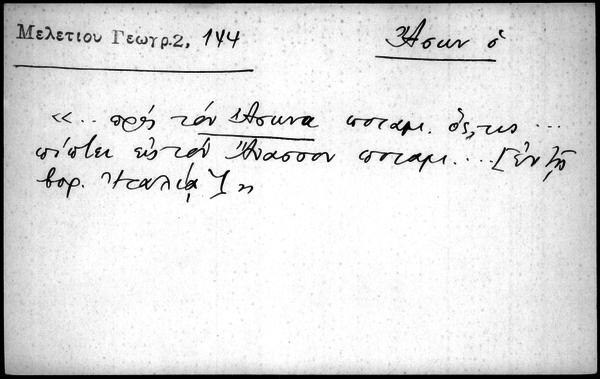 Μελετίου Γεωγρ. 2, 144
Ἄσκν ὁ
«.. πρὸς τὸν Ἄσκνα ποταμ. ὅςτις ...
πίπτει εἰς τὸν Ἄνασσον ποταμ.... [ἐν τῇ
βορ. Ἰταλίᾳ]»